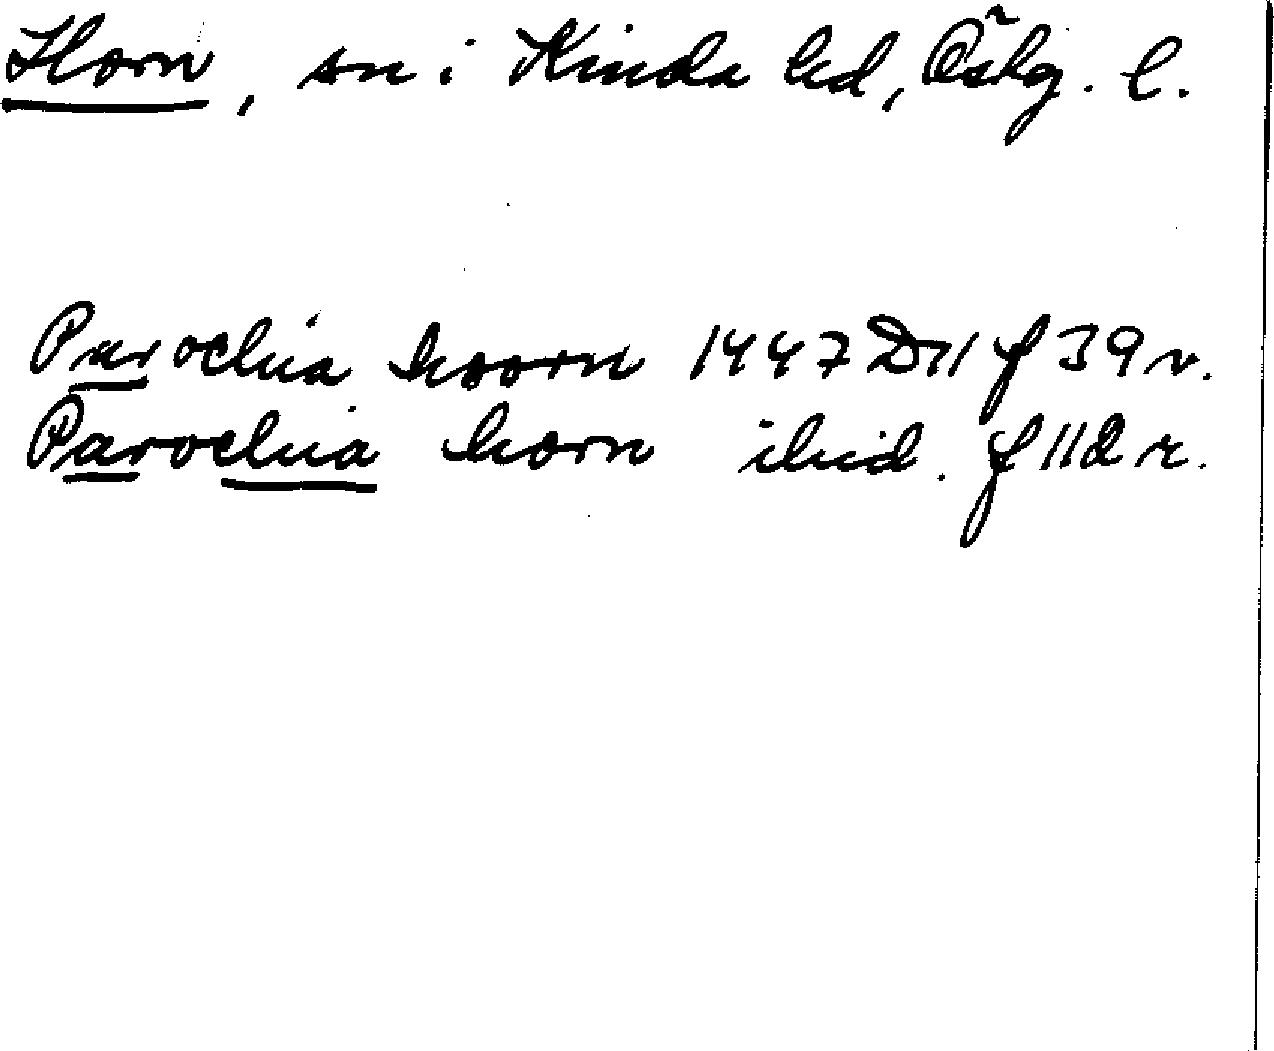 Horn, sn i Kinda hd, Östg. l.
Parochia hoorn 1447 D 11 f 39 v.
Parochia horn ibid. f 112 r.